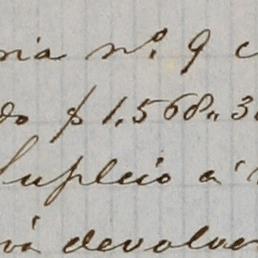 ria nº 9 c
do $ 1.568,, 3
Supleio á
rá devolver